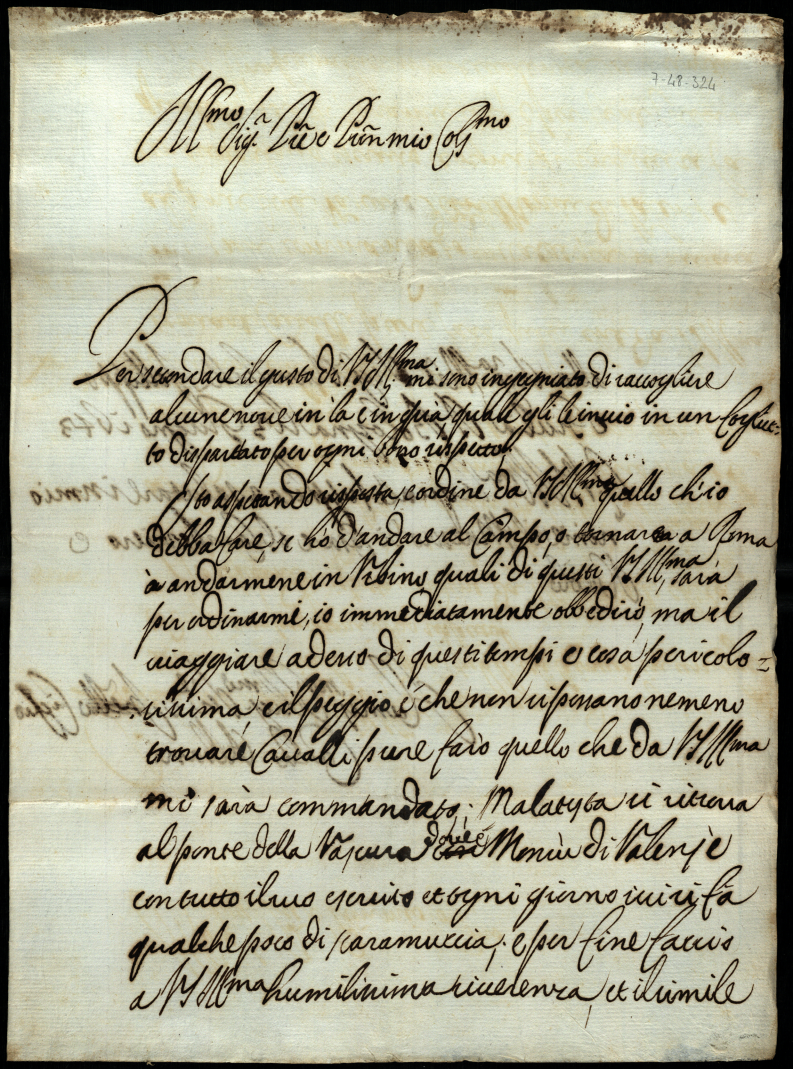 7-48-324
Ill^mo Sig.^r P̃rē e P̃rōn mio Col^mo
Per secondare il gusto di VS Ill^ma mi sono ingegniato di raccogliere
alcune nove in là e in quà quale gli le invio in un fogliet-
to disparato per ogni bono rispetto.
Sto aspetando risposta, e ordine da VS Ill^ma quello ch'io
debba fare, se hò d'andare al Campo, o tornare a Roma
ò andarmene in Urbino quali di questi VS Ill^ma sarà
per ordinarmi, io immediatamente obbedirò, ma il
viaggiare adesso di questi tempi è cosa pericolo=
sissima, e il peggio è che non si possano nemeno
trovare Cavalli pure farò quello che da VS Ill^ma
mi sarà commandato; Malatesta si ritrova
al ponte della dove è Monsù di Valensè
con tutto il suo esercito et ogni giorno ivi si fà
qualche poco di scaramuccia; e per fine faccio
a VS Ill^ma humilissima riverenza, et il simile